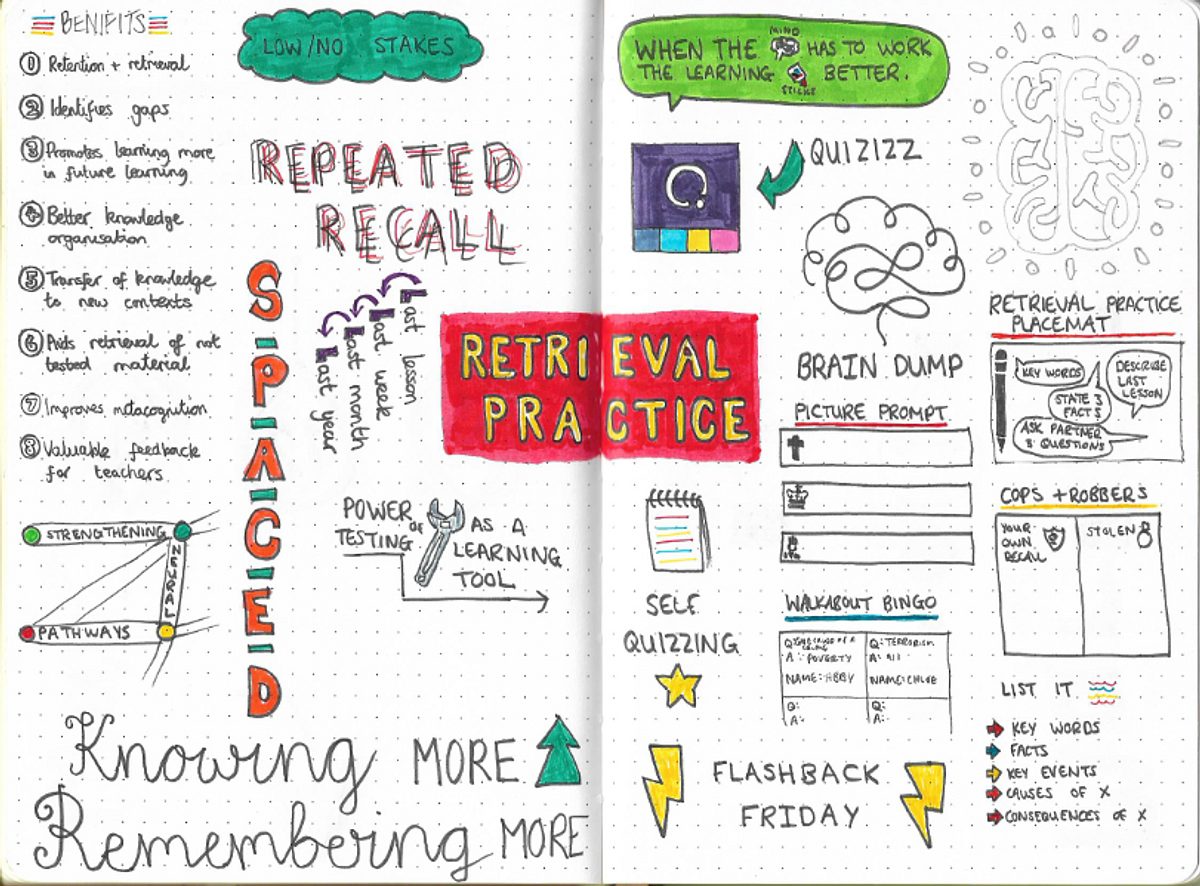 BENIFITS
① Retention + retrieval
② Identifies gaps
③ Promotes learning more
in future learning
④ Better knowledge
organisation
⑤ Transfer of knowledge
to new contexts
⑥ Aids retrieval of not
tested material
⑦ Improves metacognition
⑧ Valuable feedback
for teachers
STRENGTHENING
NEURAL
PATHWAYS
LOW/NO STAKES
REPEATED
RECALL
S-P-A-C-E-D
Last lesson
Last week
Last month
Last year
RETRIEVAL
PRACTICE
POWER OF
TESTING
AS A
LEARNING
TOOL
Knowing MORE
Remembering MORE
WHEN THE MIND HAS TO WORK
THE LEARNING STICKS BETTER.
Q
QUIZIZZ
BRAIN DUMP
PICTURE PROMPT
SELF
QUIZZING
WALKABOUT BINGO
Q:
A: POVERTY
NAME: ABBY
Q: TERRORISM
A: 9/11
NAME: CHLOE
Q:
A:
Q:
A:
FLASHBACK
FRIDAY
RETRIEVAL PRACTICE
PLACEMAT
KEY WORDS
DESCRIBE
LAST
LESSON
STATE 3
FACTS
ASK PARTNER
3 QUESTIONS
COPS + ROBBERS
YOUR
OWN
RECALL
STOLEN
LIST IT
KEY WORDS
FACTS
KEY EVENTS
CAUSES OF X
CONSEQUENCES OF X